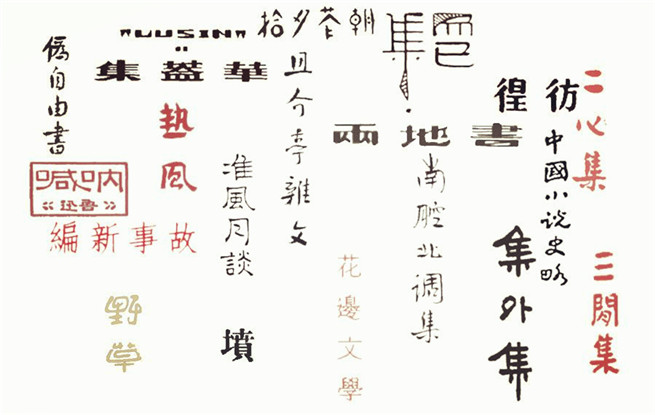 二心集
三閒集
彷徨
中國小说史略
集外集
而已集
兩地書
南腔北调集
花邊文學
朝花夕拾
且介亭雜文
"LUSIN"
華蓋集
准風月談
墳
热风
偽自由書
吶喊
魯迅
故事新編
野草